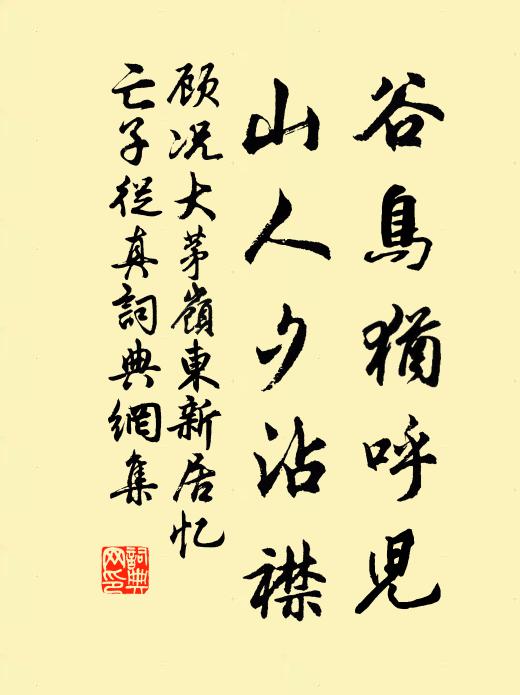 谷鳥猶呼兒
山人夕沾襟
顾况大茅嶺東新居忆
亡子從真詞典網集
詞典
网印